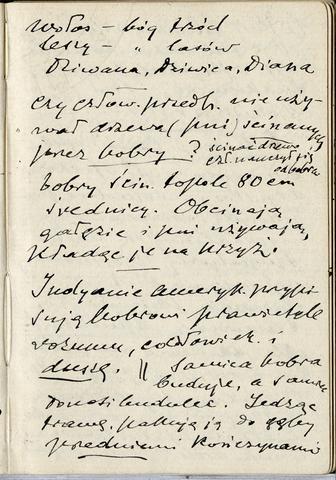 Wołos – bóg trzód
Leszy – " lasów
Dziwana, Dziwica, Diana
czy człow. przedh. nie uży-
wał drzewa (pni) ścinanych
przez bobry? ścinać drzewa
czł. nauczył się
od bobra
bobry ścin. topole 80 cm
średnicy. Obcinają
gałęzie i pni używają,
kładąc je na krzyż.
Indyanie ameryk. przypi-
sują bobrowi prawie tyle
rozumu, co człowiek. i
duszę. || Samica bobra
buduje, a samiec
donosi budulec. Jedząc
trawę, pakują ją do gęby
przedniemi kończynami